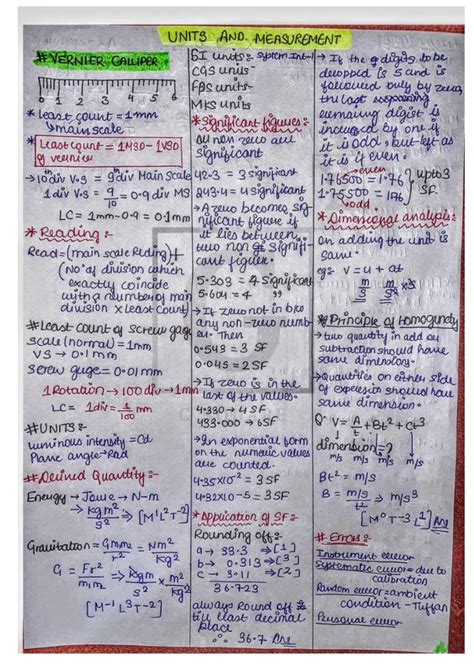 UNITS AND MEASUREMENT
# VERNIER CALLIPER
0 1 2 3 4 5 6
* least count = 1mm
↳ main scale
* Least count = 1MSD - 1VSD
of vernier
→ 10 div V.S = 9 div Main Scale
1 div V.S = 9/10 = 0.9 div MS
LC = 1mm - 0.9 = 0.1mm
* Reading :-
Read = (main scale Riding) +
(No. of division which
exactly coincide
with a number of main
division x least count)
# Least count of screw gage
Scale (normal) = 1mm
VS → 0.1mm
Screw guge = 0.01mm
1 Rotation → 100 div → 1mm
LC = 1 div = 1/100 mm
# UNITS :-
luminous intensity = Cd
Plane angle → Rad
# Derived Quantity :-
Energy → Joule → N-m
→ kgm²/s² → [M¹L²T⁻²]
Gravitation = Gmm₂/r² = Nm²/kg²
G = Fr²/m₁m₂ → kgm/s² x m²/kg²
[M⁻¹L³T⁻²]
SI units :- System Int
CGS units -
FPS units -
MKS units -
* Significant figures :-
All non zero are
significant
42.3 = 3 significant
243.4 = 4 significant
→ A zero becomes sig-
nificant figure if
it lies between
two non signifi-
cant figure.
5.303 = 4 significant
5.604 = 4 "
→ If zero not in b/w
any non-zero numb-
er. Then
0.543 = 3 SF
0.045 = 2 SF
→ If zero is in the
last of the values.
4.330 → 4 SF
433.000 → 6 SF
→ In exponential form
on the numeric values
are counted.
4.35x10² = 3 SF
4.32x10⁻⁵ = 3 SF
* Application of SF :-
Rounding off :-
a → 33.3 → [1]
b → 0.313 → [3]
c → 3.11 → [2]
36.723
always Round off
till least decimal
place
∴ 36.7 Ans
→ If the digits to be
dropped is 5 and is
followed only by zeros
the last
remaning digist is
included by one if
it is odd, but left as
it is if even.
1.76500 = 1.76 upto 3
1.75500 = 176 SF
odd
* Dimensional analysis :-
On adding the unit is
same.
eg:- V = u + at
m/s m/s² x s
* Principle of Homogunety
→ two quantity in add or
subtraction should have
same dimension.
→ Quantities on either side
of expression should have
same dimension.
Q. V = A/t + Bt² + Ct³
dimension = ?
m/s m/s m/s m/s
Bt² = m/s
B = m/s/t² → m/s³
[M⁰T⁻³L¹] Ans
# Errors :-
Instrument error
Systematic error = due to
calibration
Random error = ambient
condition - Tuffan
Personal error